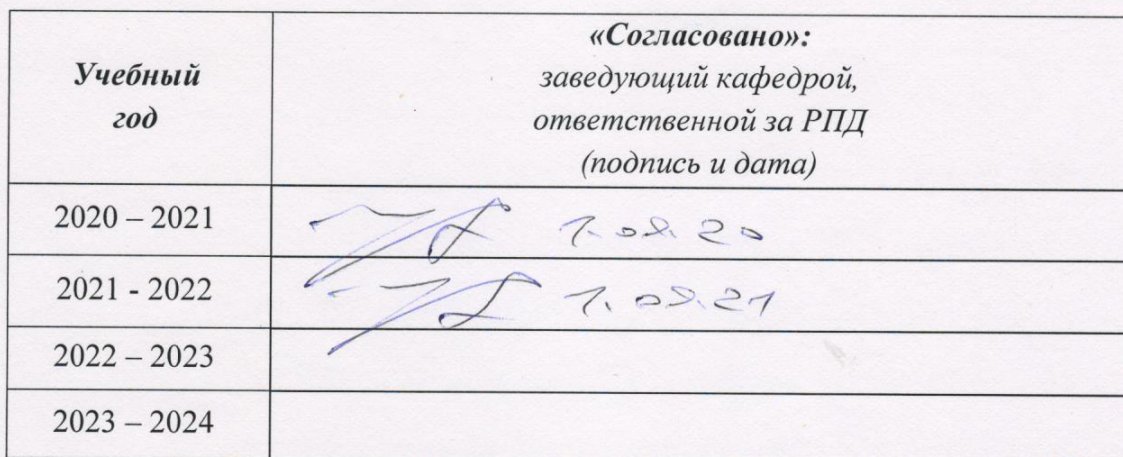 Учебный
год
«Согласовано»:
заведующий кафедрой,
ответственной за РПД
(подпись и дата)
2020 – 2021 1.09.20
2021 - 2022 1.09.21
2022 – 2023
2023 – 2024